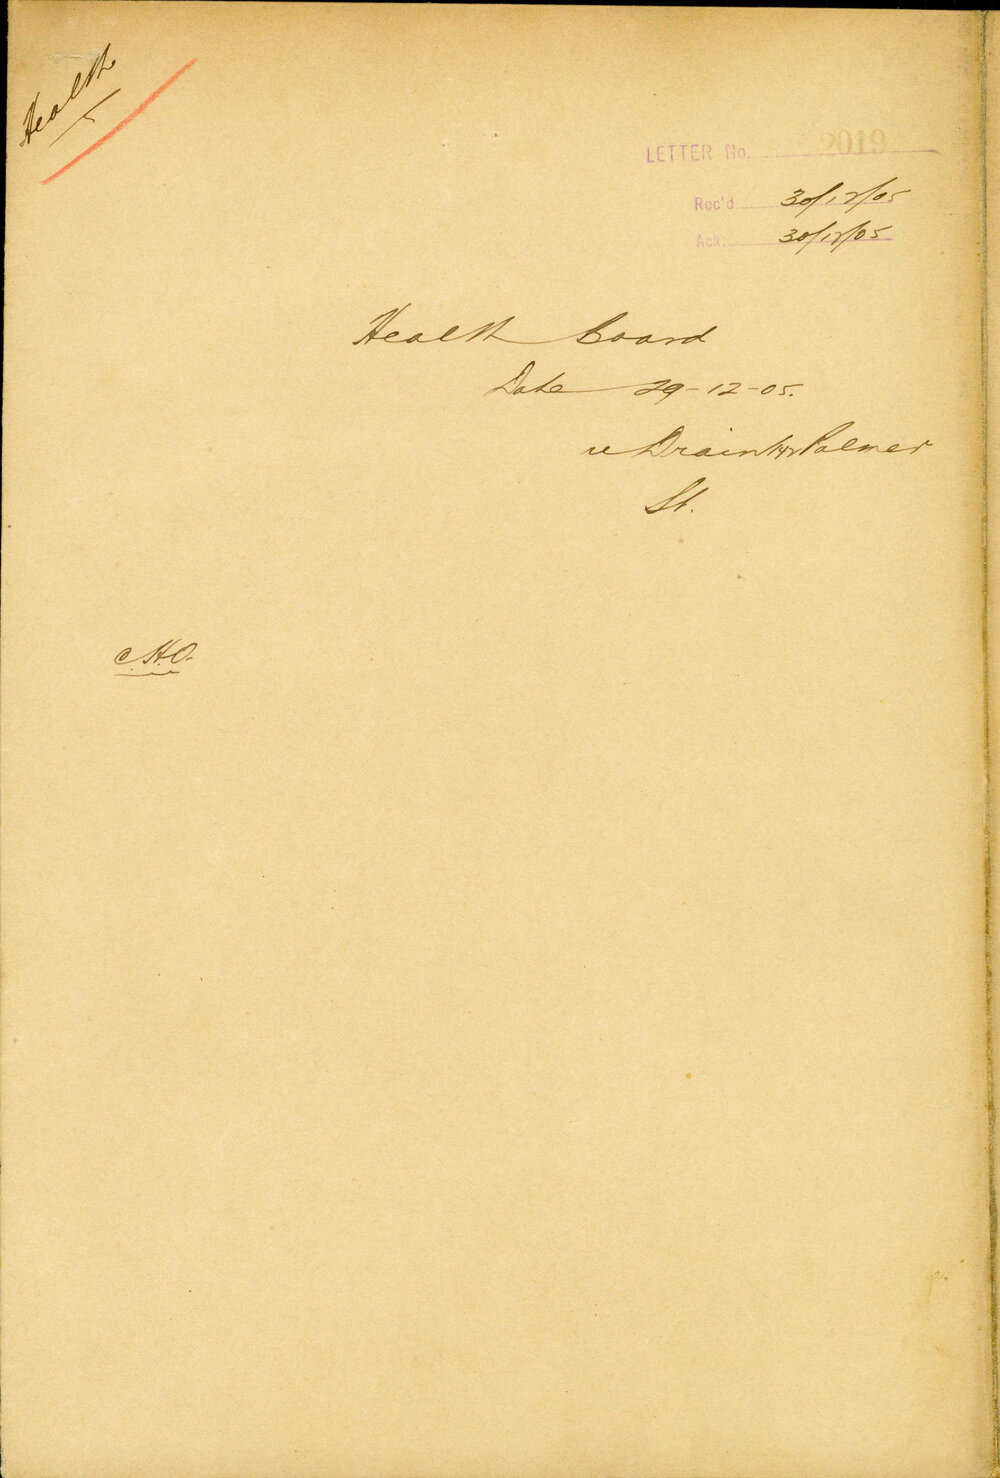 Health
LETTER No. 2019
Rec'd 30/12/05
Ack. 30/12/05
Health Board
Date 29-12-05.
re Drain Palmer
St.
C.H.O.